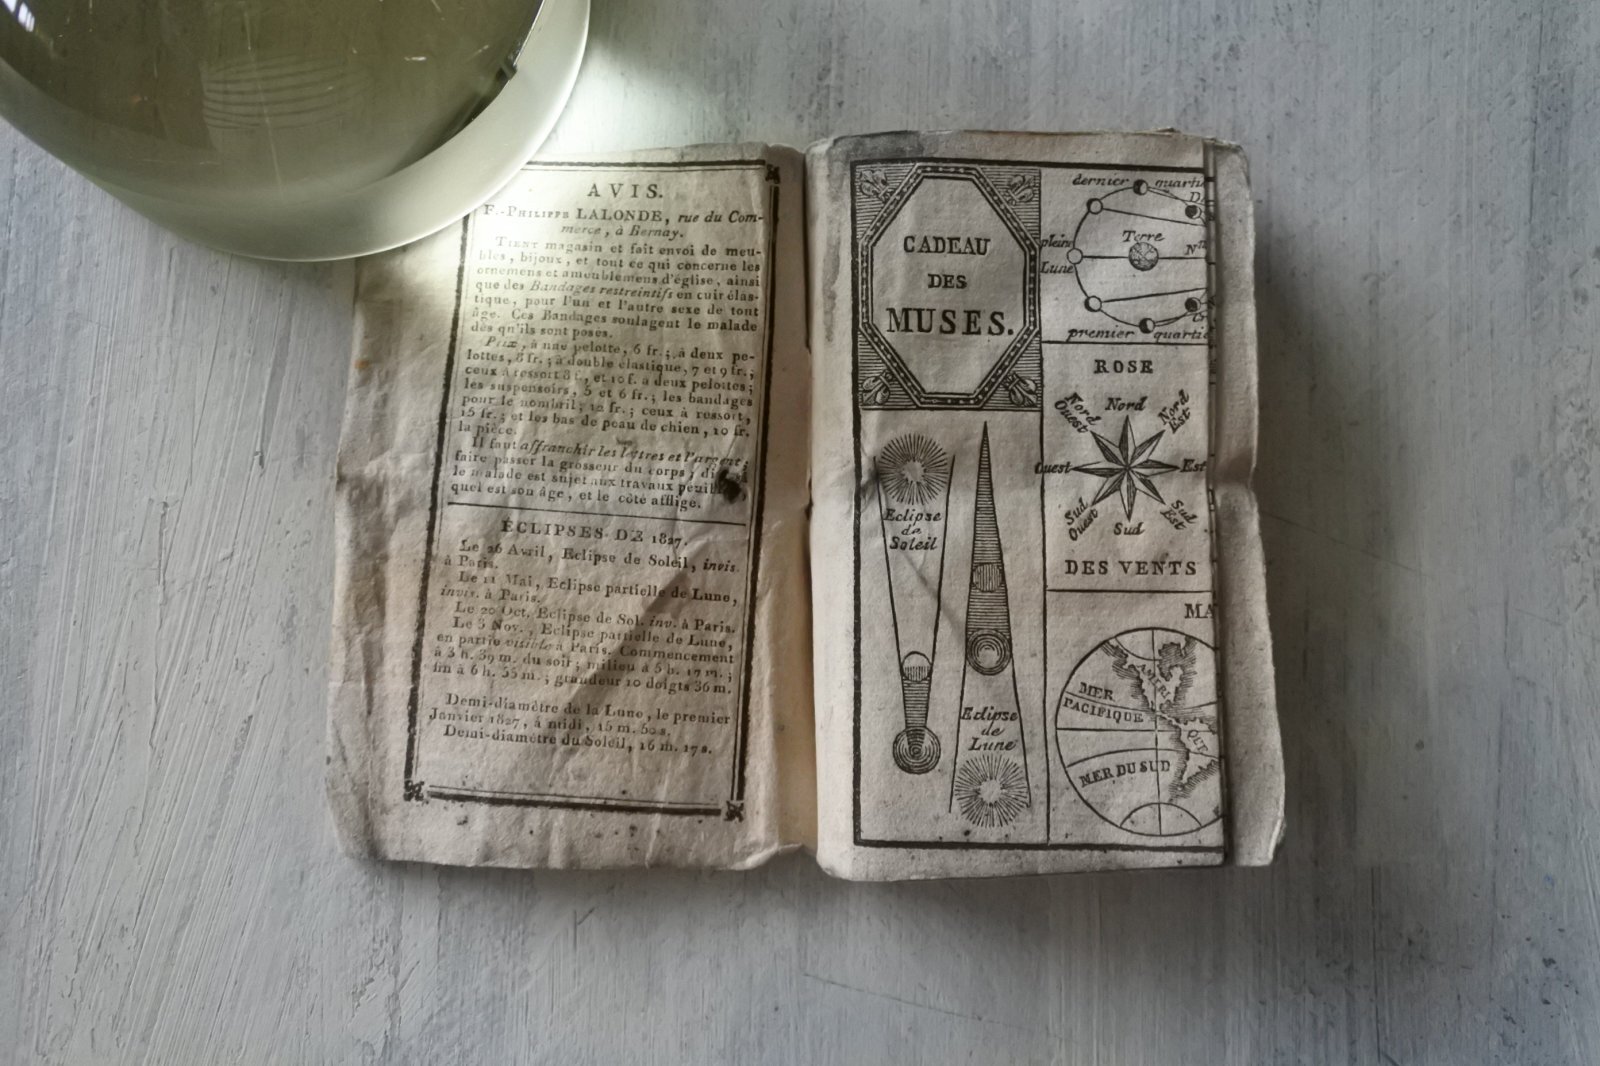 AVIS.
F.-PHILIPPE LALONDE, rue du Com-
merce, à Bernay.
TIENT magasin et fait envoi de meu-
bles, bijoux, et tout ce qui concerne les
ornemens et ameublemens d'église, ainsi
que des Bandages restreintifs en cuir élas-
tique, pour l'un et l'autre sexe de tout
âge. Ces Bandages soulagent le malade
dès qu'ils sont posés.
Prix, à une pelotte, 6 fr.; à deux pe-
lottes, 8 fr.; à double élastique, 7 et 9 fr.;
ceux à ressort 8 f., et 10 f. a deux pelottes;
les suspensoirs, 5 et 6 fr.; les bandages
pour le nombril; 12 fr.; ceux à ressort,
15 fr.; et les bas de peau de chien, 10 fr.
la pièce.
Il faut affranchir les lettres et l'argent;
faire passer la grosseur du corps,
le malade est sujet aux travaux
quel est son âge, et le côté affligé.
ÉCLIPSES DE 1827.
Le 26 Avril, Eclipse de Soleil, invis.
à Paris.
Le 11 Mai, Eclipse partielle de Lune,
invis. à Paris.
Le 20 Oct. Eclipse de Sol. inv. à Paris.
Le 3 Nov., Eclipse partielle de Lune,
en partie visible à Paris. Commencement
à 3 h. 39 m. du soir; milieu à 5 h. 17 m.;
fin à 6 h. 55 m.; grandeur 10 doigts 36 m.
Demi-diamètre de la Lune, le premier
Janvier 1827, à midi, 15 m. 50 s.
Demi-diamètre du Soleil, 16 m. 17 s.
CADEAU
DES
MUSES.
dernier quartie
pleine
Lune
Terre
premier quartie
ROSE
Nord
Nord Est
Est
Sud Est
Sud
Sud Ouest
Ouest
Nord Ouest
DES VENTS
Eclipse
de
Soleil
Eclipse
de
Lune
MA
MER
PACIFIQUE
AMERI
QUE
MER DU SUD